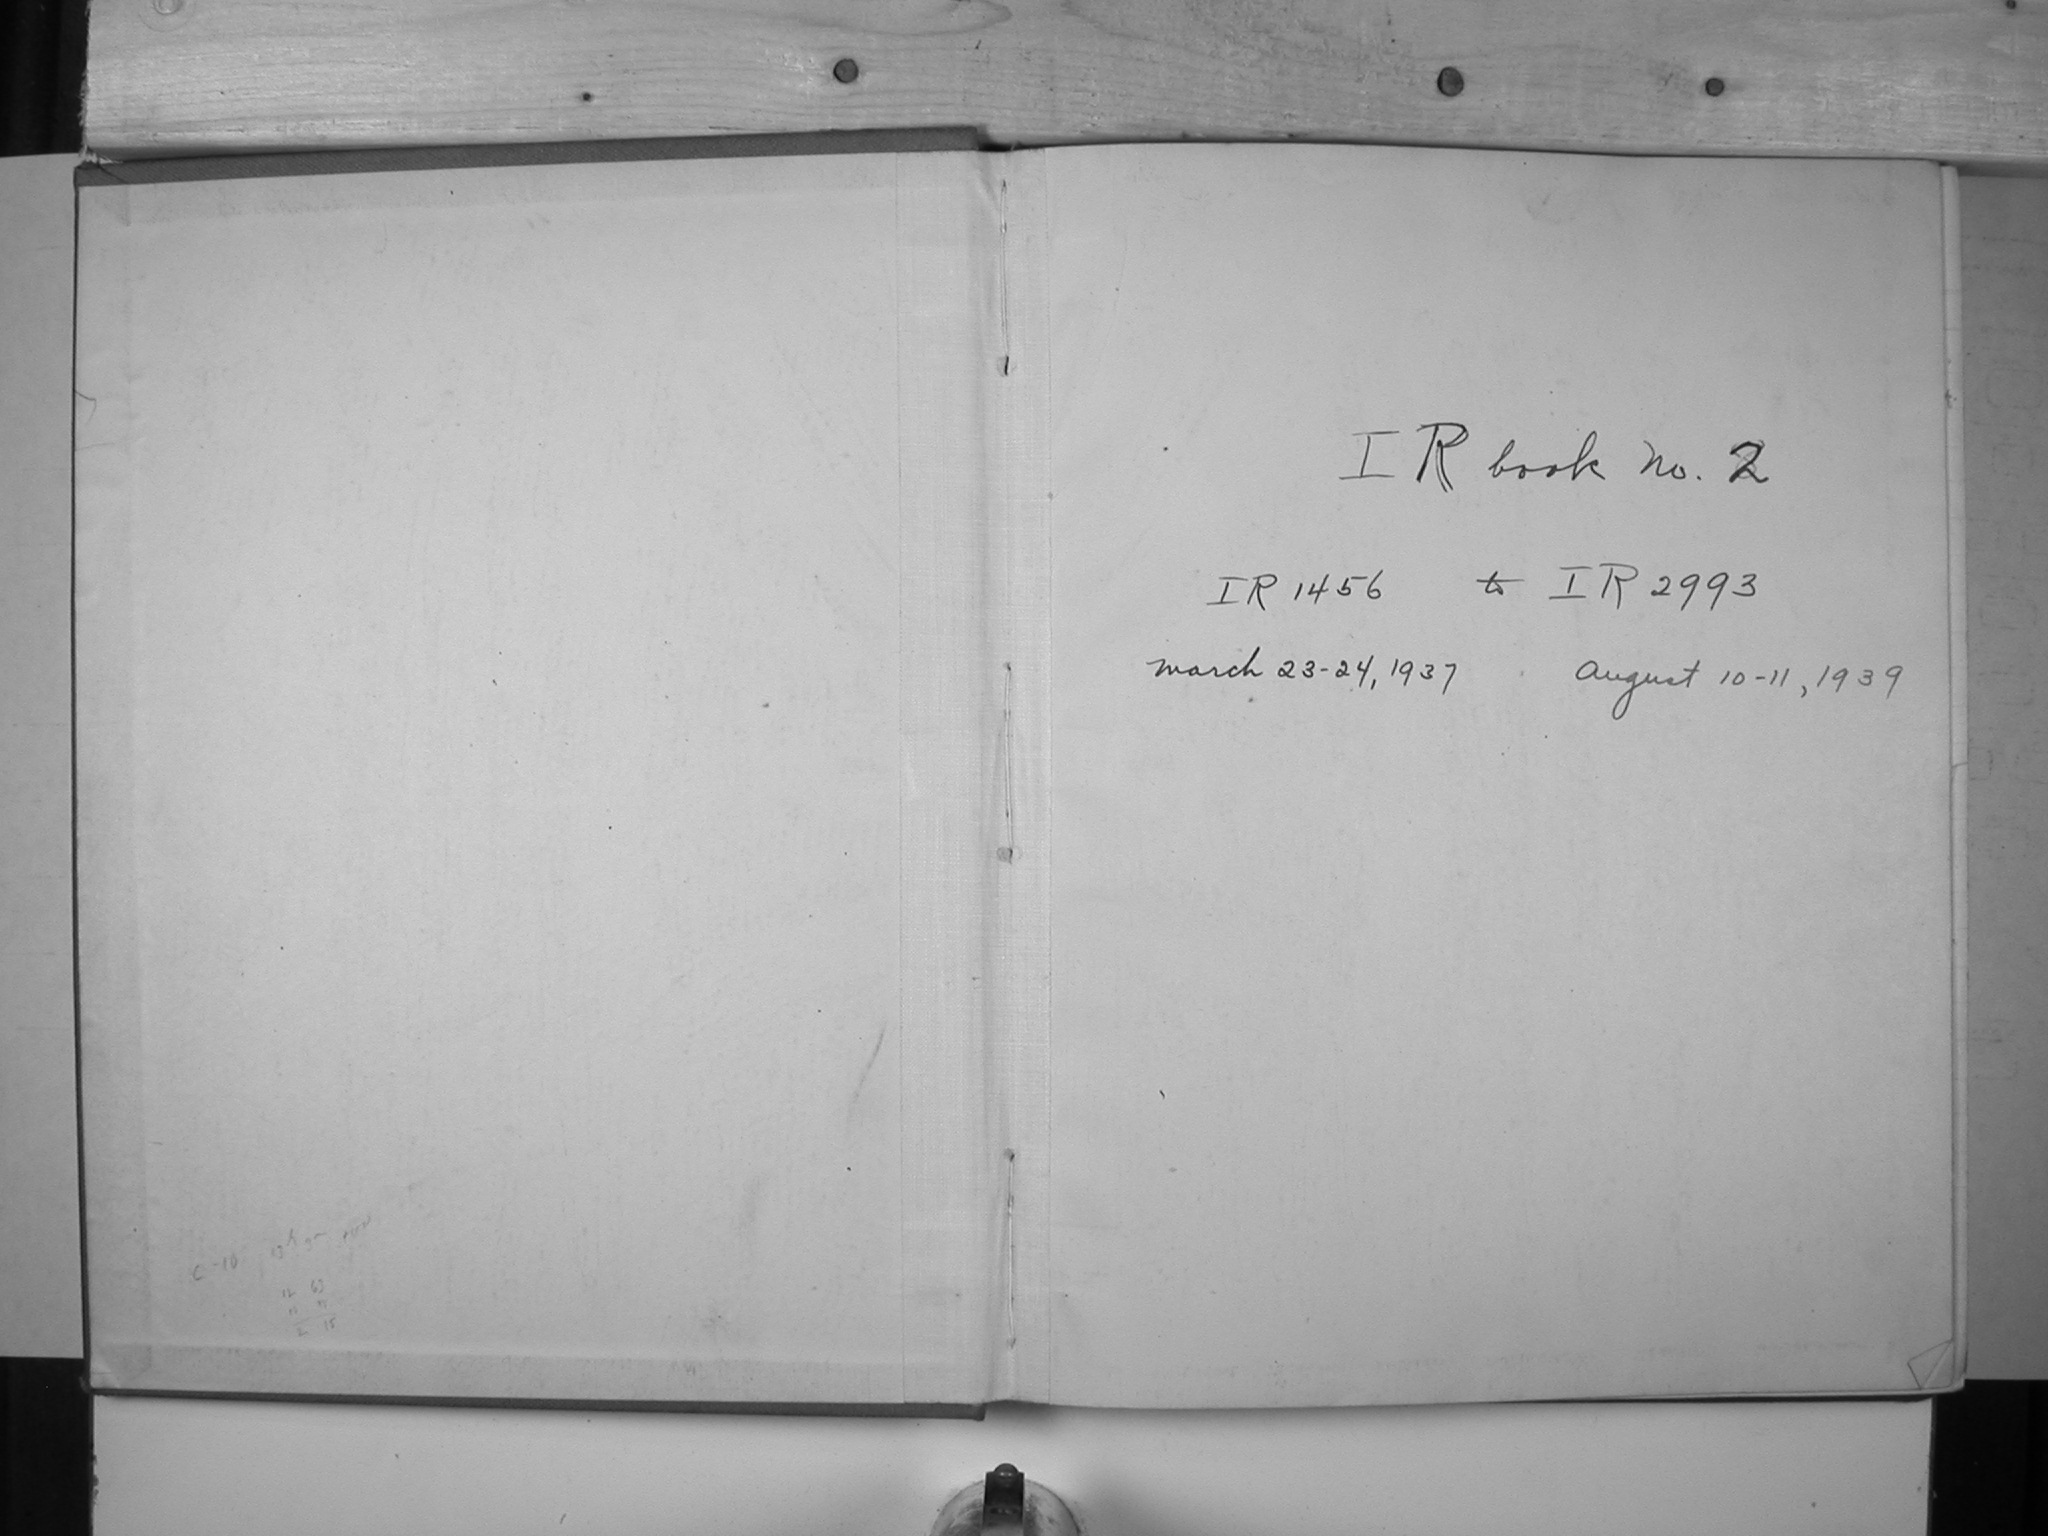 C-10
I R book No. 2
IR 1456 to IR 2993
March 23-24, 1937 August 10-11, 1939